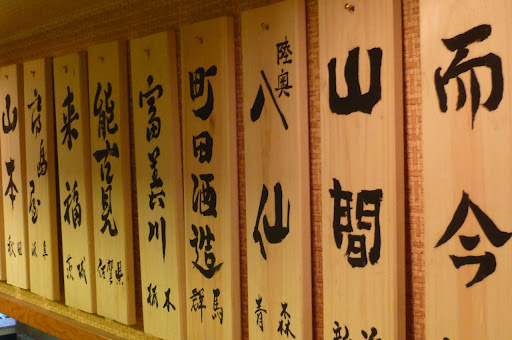 而今
山間
新
陸奥
八仙
青森
町田酒造
群馬
富美川
栃木
能古見
佐賀県
来福
茨城
房島屋
岐阜
山本
秋田